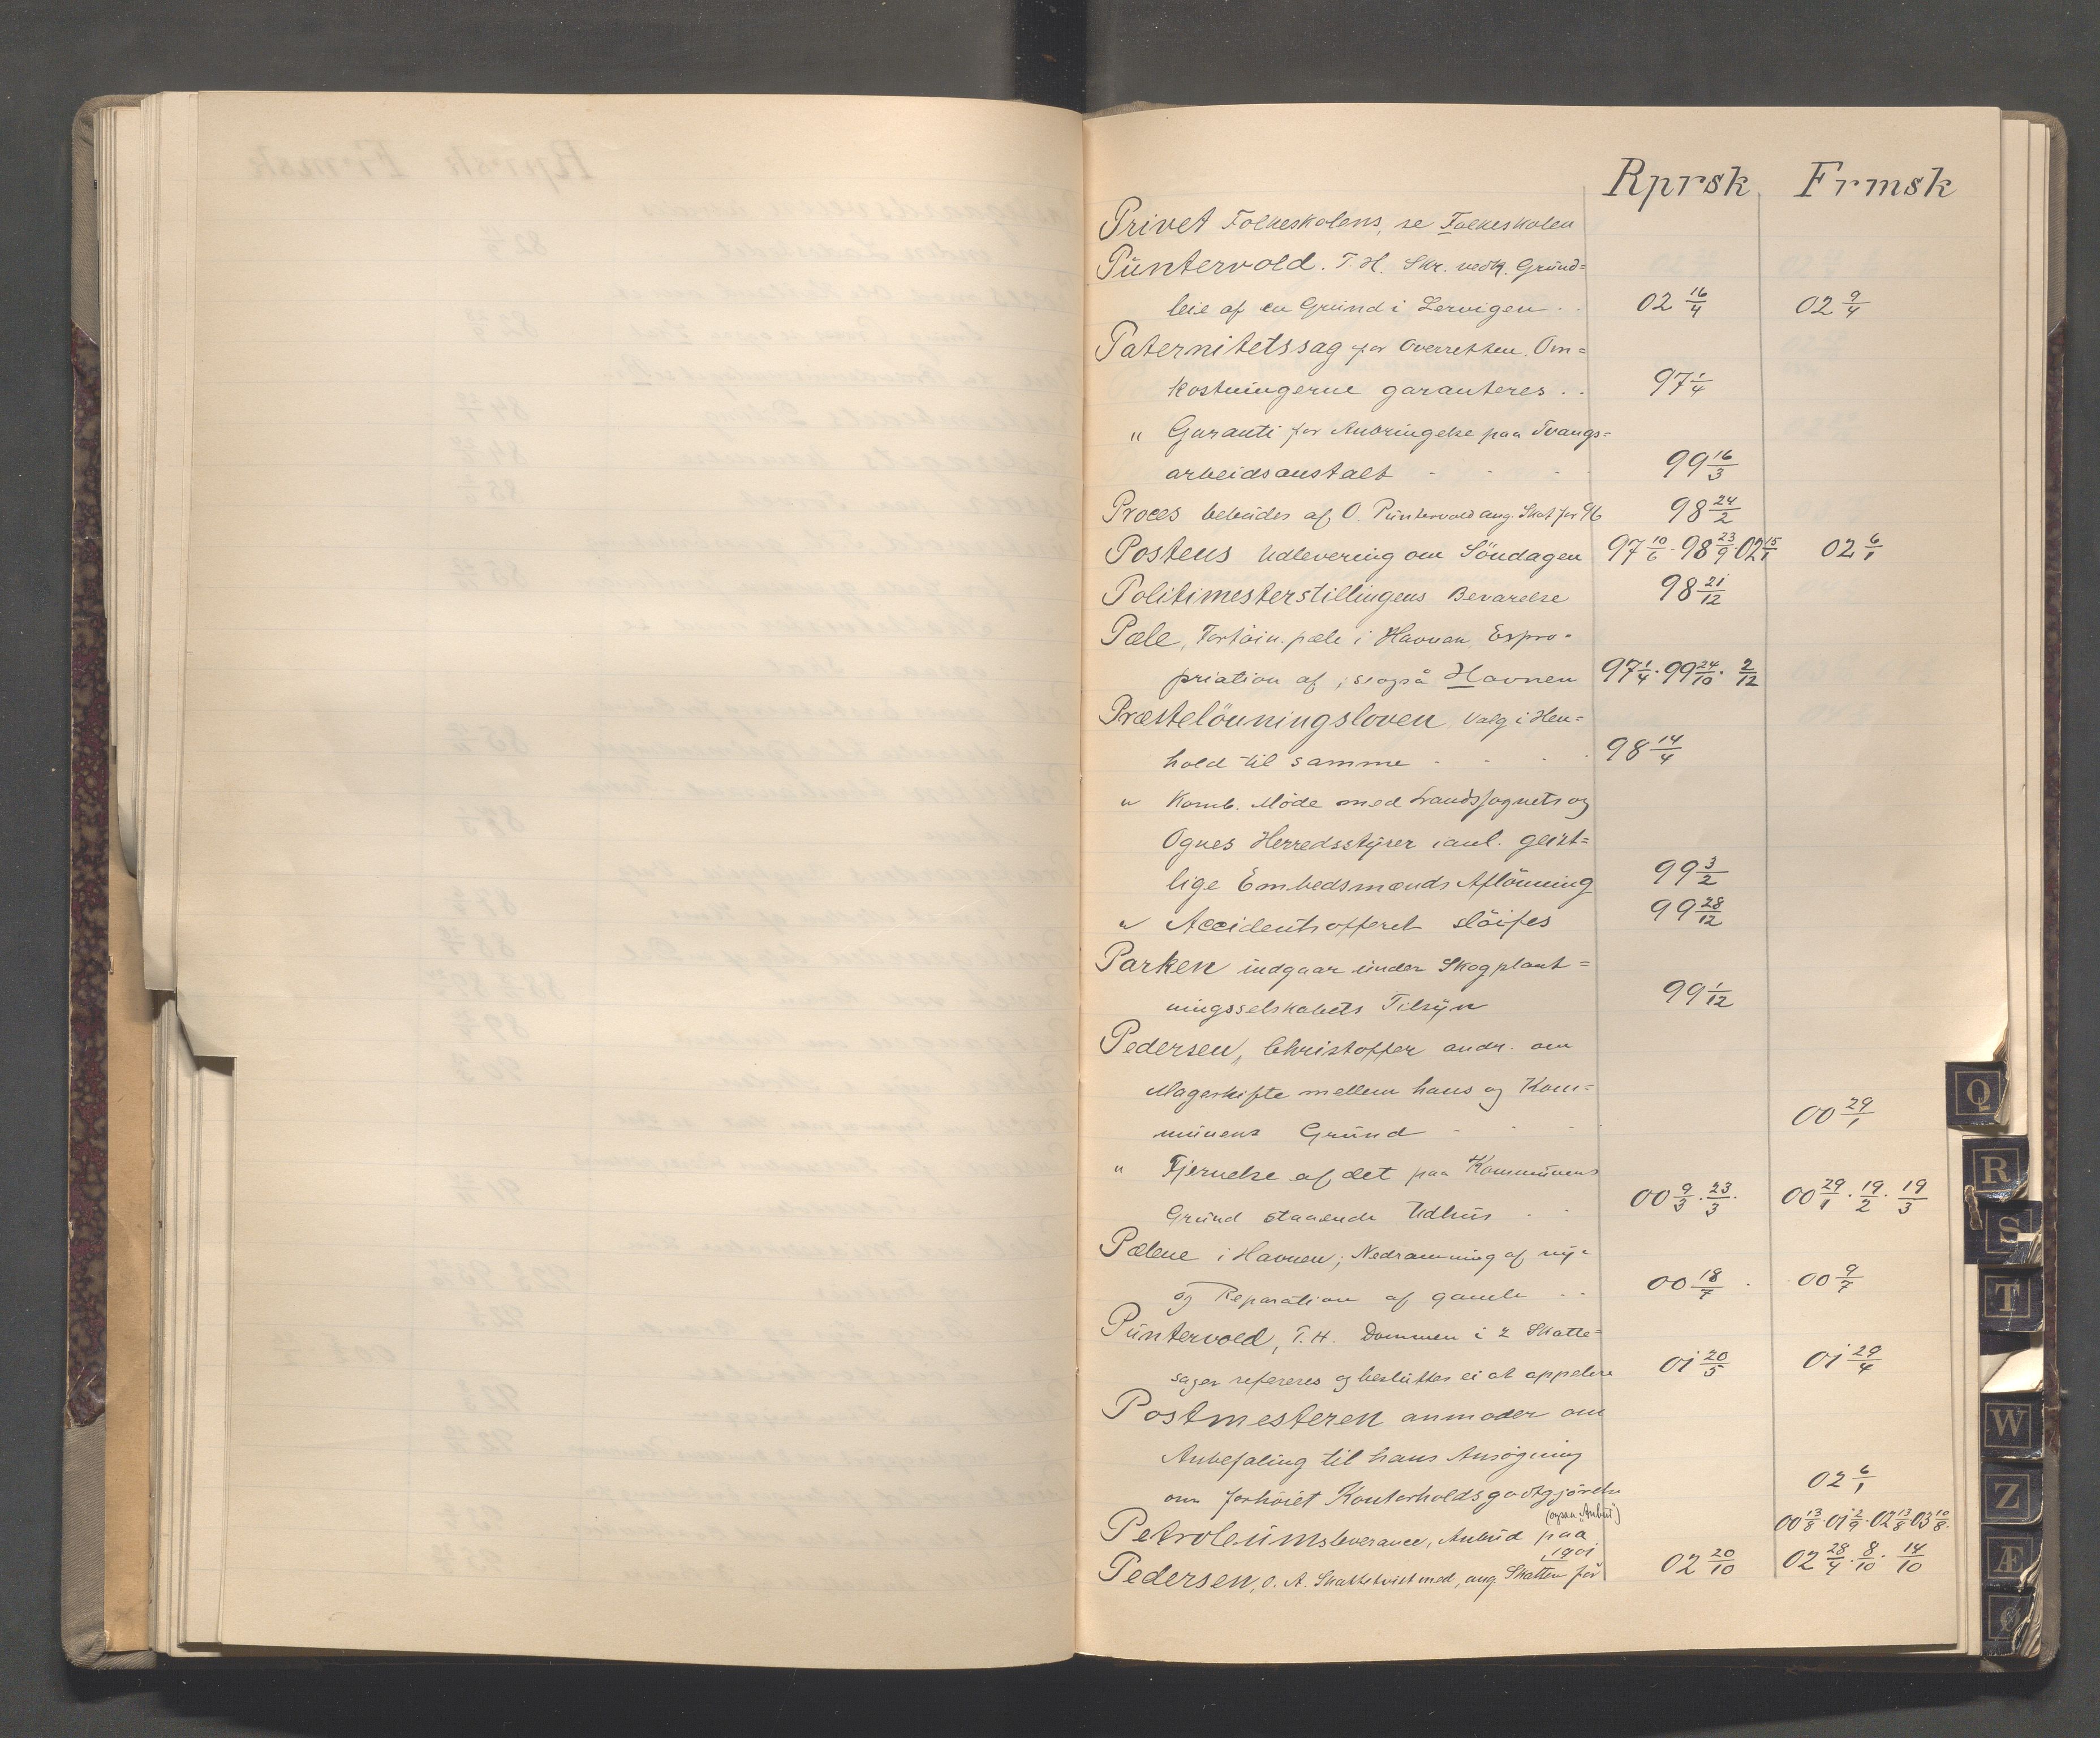 Rprsk Frmsk
Privet Folkeskolens, se Folkeskolen
Püntervold. T. H. Skr. vedk. Gründ=
leie af en Gründ i Lervigen . . 02 16/4 02 9/4
Paternitetssag for Overretten. Om=
kostningerne garanteres . . 97 1/4
" Garanti for Anbringelse paa Tvangs=
arbeidsanstalt - - - 99 16/3
Proces bebüdes af O. Püntervold ang. Skat for 96 98 24/2
Postens Udlevering om Söndagen 97 10/6 · 98 23/9 02 15/1 02 6/1
Politimesterstillingens Bevarelse 98 21/12
Pæle, Fortöin. pæle i Havnen, Expro-
priation af, ; se også Havnen 97 1/4 · 99 24/10 · 2/12
Præstelönningsloven, Valg i Hen=
hold til samme - - - 98 14/4
" Komb. Møde med Landssognets og
Ognes Herredsstyrer i anl. geist=
lige Embedsmænds Aflönning 99 3/2
" Accidents offeret slöifes 99 28/12
Parken indgaar ünder Skogplant=
ningsselskabets Tilsyn 99 1/12
Pedersen, Christoffer andr. om
Mageskifte mellem hans og Kom=
münens Gründ - - - 00 29/1
" Fjernelse af det paa Kommünens
Gründ staaende Udhüs . . 00 9/3 · 23/3 · 00 29/1 · 19/2 · 19/3
Pælene i Havnen; Nedramming af ny-
og Reparation af gamle . . 00 18/7 · 00 9/7
Püntervold, T. H. Dommen i 2 Skatte=
sager refereres og beslüttes ei at appelere 01 20/5 01 29/4
Postmesteren anmoder om
Anbefaling til hans Ansøgning
om forhöiet Kontorholdsgodtgjörelse 02 6/1
(ogsaa "Anbud")
Petroleümsleverance, Anbüd paa 00 13/8 · 01 2/9 · 02 13/8 03 10/8 ·
1901
Pedersen, O. A. Skattetvist med, ang. Skatten for 02 20/10 02 28/4 · 8/10 · 14/10
Q
R
S
T
W
Z
Æ
Ø